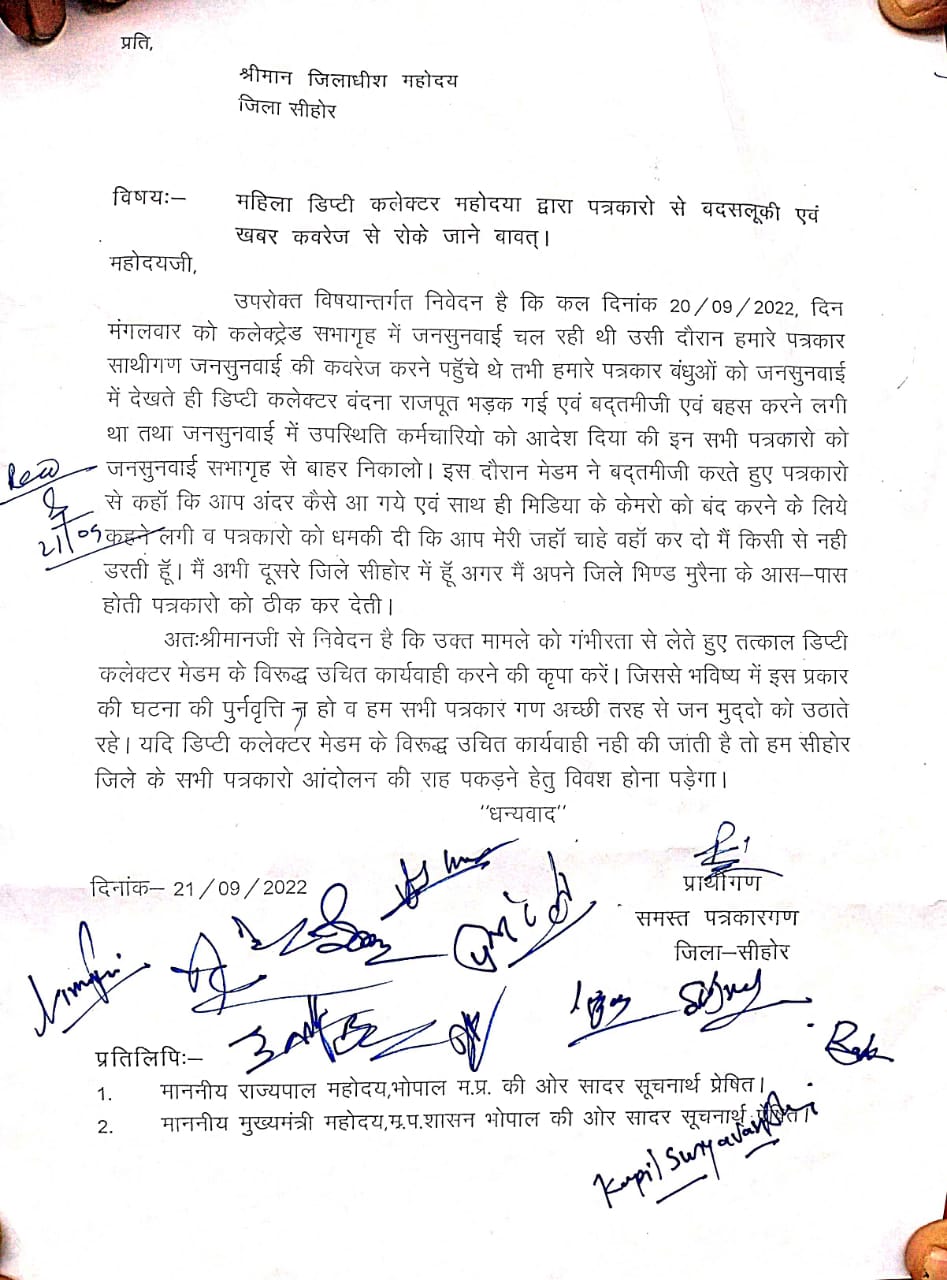 प्रति,
श्रीमान जिलाधीश महोदय
जिला सीहोर
विषयः– महिला डिप्टी कलेक्टर महोदया द्वारा पत्रकारो से बदसलूकी एवं
खबर कवरेज से रोके जाने बावत्।
महोदयजी,
उपरोक्त विषयान्तर्गत निवेदन है कि कल दिनांक 20/09/2022, दिन
मंगलवार को कलेक्ट्रेड सभागृह में जनसुनवाई चल रही थी उसी दौरान हमारे पत्रकार
साथीगण जनसुनवाई की कवरेज करने पहुॅचे थे तभी हमारे पत्रकार बंधुओं को जनसुनवाई
में देखते ही डिप्टी कलेक्टर वंदना राजपूत भड़क गई एवं बद्तमीजी एवं बहस करने लगी
था तथा जनसुनवाई में उपस्थिति कर्मचारियो को आदेश दिया की इन सभी पत्रकारो को
जनसुनवाई सभागृह से बाहर निकालो। इस दौरान मेडम ने बद्तमीजी करते हुए पत्रकारो
से कहॉ कि आप अंदर कैसे आ गये एवं साथ ही मिडिया के केमरो को बंद करने के लिये
21/09 कहने लगी व पत्रकारो को धमकी दी कि आप मेरी जहॉ चाहे वहॉ कर दो मैं किसी से नही
डरती हूॅ। मैं अभी दूसरे जिले सीहोर में हूॅ अगर मैं अपने जिले भिण्ड मुरैना के आस–पास
होती पत्रकारो को ठीक कर देती।
अतःश्रीमानजी से निवेदन है कि उक्त मामले को गंभीरता से लेते हुए तत्काल डिप्टी
कलेक्टर मेडम के विरूद्ध उचित कार्यवाही करने की कृपा करें। जिससे भविष्य में इस प्रकार
की घटना की पुर्नवृत्ति न हो व हम सभी पत्रकार गण अच्छी तरह से जन मुद्दो को उठाते
रहे। यदि डिप्टी कलेक्टर मेडम के विरूद्ध उचित कार्यवाही नही की जाती है तो हम सीहोर
जिले के सभी पत्रकारो आंदोलन की राह पकड़ने हेतु विवश होना पड़ेगा।
"धन्यवाद"
दिनांक– 21/09/2022
प्रार्थीगण
समस्त पत्रकारगण
जिला–सीहोर
प्रतिलिपिः–
1. माननीय राज्यपाल महोदय,भोपाल म.प्र. की ओर सादर सूचनार्थ प्रेषित।
2. माननीय मुख्यमंत्री महोदय,म.प.शासन भोपाल की ओर सादर सूचनार्थ प्रेषित।
Kapil Suryavanshi